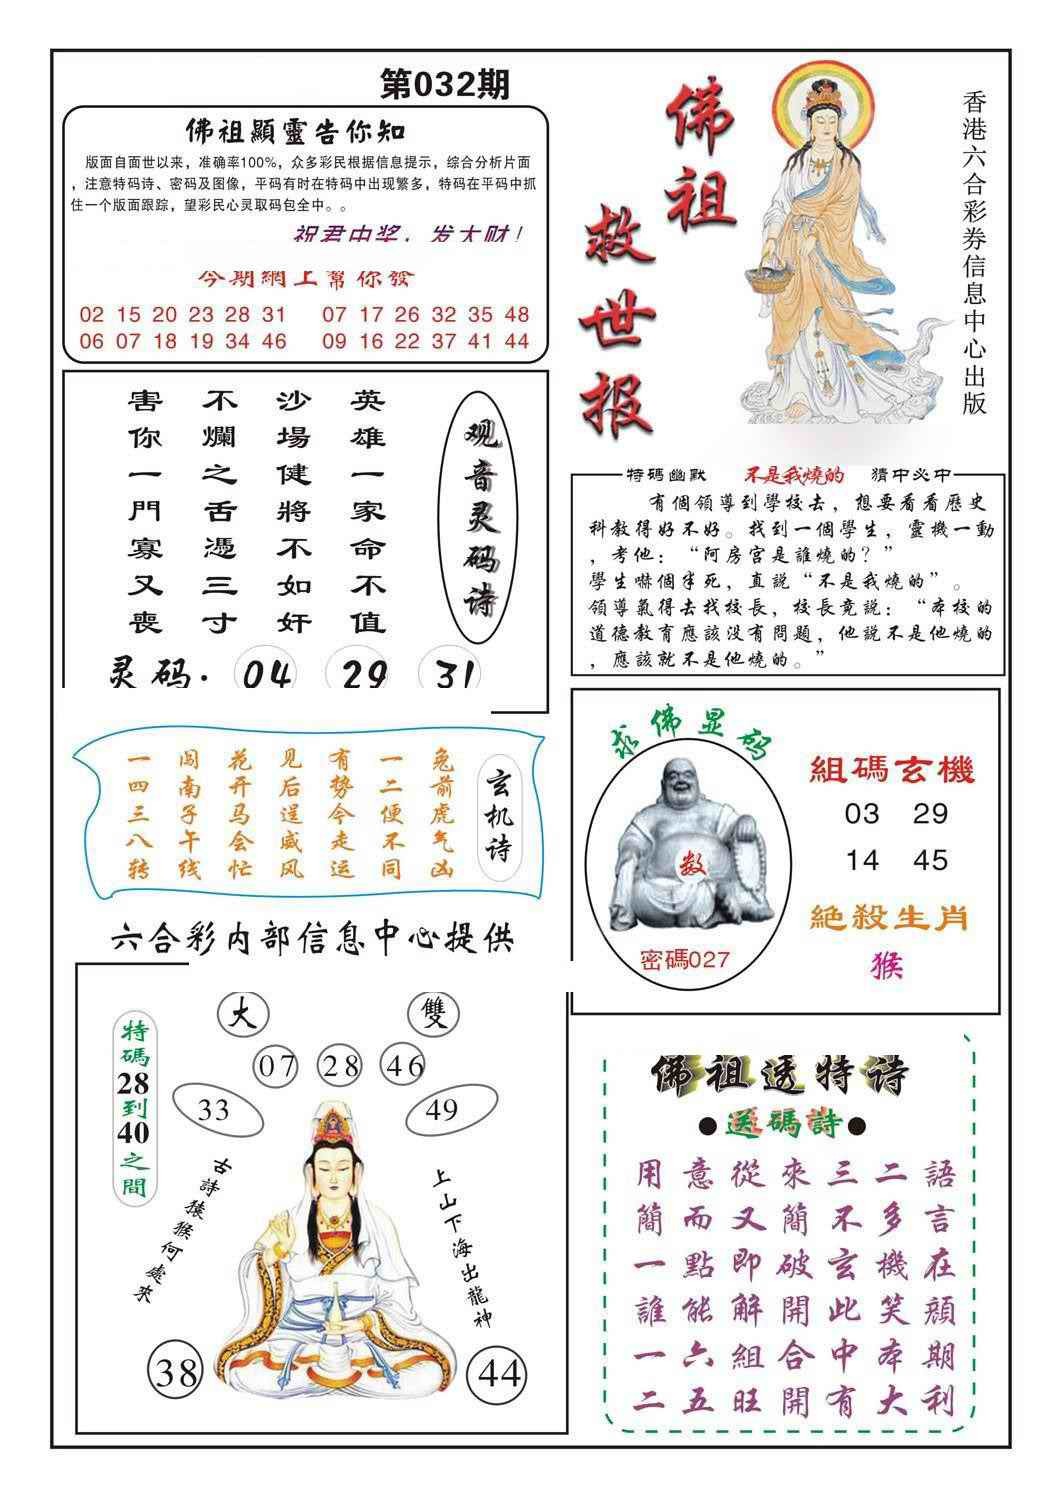 第032期
佛祖顯靈告你知
版面自面世以来，准确率100%，众多彩民根据信息提示，综合分析片面
，注意特码诗、密码及图像，平码有时在特码中出现繁多，特码在平码中抓
住一个版面跟踪，望彩民心灵取码包全中。。
祝君中奖，发大财！
今期網上幫你發
02 15 20 23 28 31 07 17 26 32 35 48
06 07 18 19 34 46 09 16 22 37 41 44
佛祖
救世报
香港六合彩券信息中心出版
观音灵码诗
英雄一家命不值
沙場健將不如奸
不爛之舌憑三寸
害你一門寡又喪
灵码. 04 29 31
特碼幽默 不是我燒的 猜中必中
有個領導到學校去，想要看看歷史
科教得好不好。找到一個學生，靈機一動
，考他：“阿房宫是誰燒的？”
學生嚇個半死，直説“不是我燒的”。
領導氣得去找校長，校長竟説：“本校的
道德教育應該没有問題，他説不是他燒的
，應該就不是他燒的。”
玄机诗
兔前虎气凶
一二便不同
有势今走运
见后逞威风
花开马会忙
闯南子午线
一四三八转
求佛显码
数
密碼027
組碼玄機
03 29
14 45
絶殺生肖
猴
六合彩内部信息中心提供
特碼28到40之間
大 雙
07 28 46
33 49
古詩猿猴何處來
上山下海出龍神
38 44
佛祖透特诗
●送碼詩●
用意從來三二語
簡而又簡不多言
一點即破玄機在
誰能解開此笑顔
一六組合中本期
二五旺開有大利